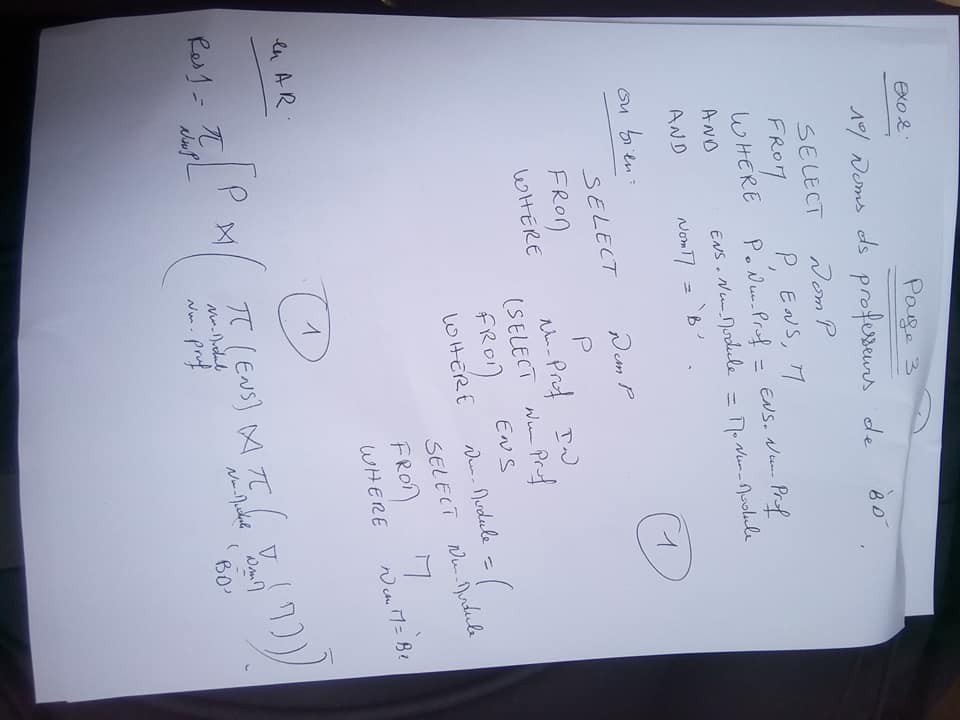 Page 3
Exo2:
1°/ Noms ds professeurs de 'BD'.
SELECT NomP
FROM P, ENS, M
WHERE P.Num_Prof = ENS.Num_Prof
AND ENS.Num_Module = M.Num_Module
AND NomM = 'B'.
1
ou bien:
SELECT NomP
FROM P
WHERE Num_Prof IN
(SELECT Num_Prof
FROM ENS
WHERE Num_Module = (
SELECT Num_Module
FROM M
WHERE NomM = 'B
1
en AR:
Res1 = π NomP [ P ⋈ ( π Num_Module Num_prof (ENS) ⋈ π Num_Module ( σ NomM = 'BD' (M)))]